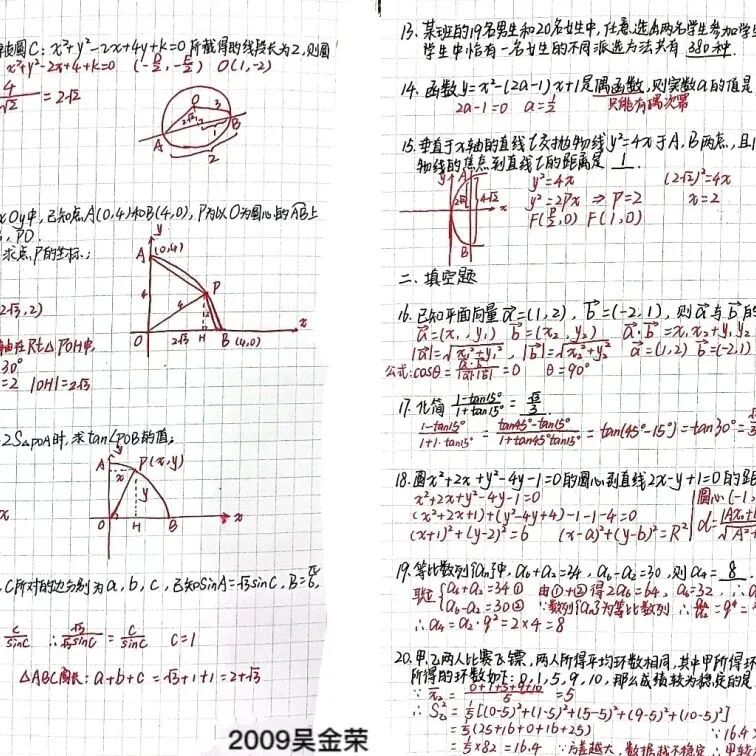 圆C：x²+y²-2x+4y+k=0所截得的线段长为2，则圆
x²+y²-2x+4+k=0 (-D/2,-E/2) O(1,-2)
= 2√2
O
3
2√2
1
A
B
2
xOy中，已知点A(0,4)和B(4,0)，P为以O为圆心的AB上
，PD
求点P的坐标；
y
A
(0,4)
P
4
4
2
O
2√3
H
B
(4,0)
x
2√3,2)
轴在Rt△POH中，
30°
=2 |OH|=2√3
2S△POA时，求tan∠POB的值；
y
A
P(x,y)
x
y
O
H
B
x
C所对的边分别为a,b,c，已知sinA=√3sinC，B=π/6，
c/sinC ∴ √3/√3sinC = c/sinC C=1
△ABC周长：a+b+c=√3+1+1=2+√3
2009吴金荣
13. 某班的19名男生和20名女生中，任意选出两名学生参加学
学生中恰有一名女生的不同派选方法共有 380种
14. 函数y=x²-(2a-1)x+1是偶函数，则实数a的值是
2a-1=0 a=1/2 只能有偶次幂
15. 垂直于x轴的直线l交抛物线y²=4x于A,B两点，且
物线的焦点到直线l的距离是 1
y
A
2√2
4√2
x
B
y²=4x (2√2)²=4x
y²=2px ⇒ P=2 x=2
F(P/2,0) F(1,0)
二、填空题
16. 已知平面向量a=(1,2)，b=(-2,1)，则a与b的
a=(x₁,y₁) b=(x₂,y₂) a·b=x₁x₂+y₁y₂
|a|=√x₁²+y₁²，|b|=√x₂²+y₂² a=(1,2) b=(-2,1)
公式：cosθ=a·b/|a||b|=0 θ=90°
17. 化简 1-tan15°/1+tan15° = √3/3
1-tan15°/1+1·tan15° = tan45°-tan15°/1+tan45°tan15° = tan(45°-15°)=tan30°=
18. 圆x²+2x+y²-4y-1=0的圆心到直线2x-y+1=0的距
x²+2x+y²-4y-1=0 圆心(-1,
(x²+2x+1)+(y²-4y+4)-1-1-4=0
(x+1)²+(y-2)²=6 (x-a)²+(y-b)²=R²
19. 等比数列{aₙ}中，a₆+a₂=34，a₆-a₂=30，则a₄= 8
联立{a₆+a₂=34① 由①+②得2a₆=64，a₆=32，∴a
a₆-a₂=30② ∵数列{aₙ}为等比数列 ∴a₆/a₂=q⁴=
∴a₄=a₂·q²=2×4=8
20. 甲、乙两人比赛飞镖，两人所得平均环数相同，其中甲所得环
所得的环数如下：0,1,5,9,10，那么成绩较为稳定的是
∵ x₂=0+1+5+9+10/5=5
∴S₂²=1/5[(0-5)²+(1-5)²+(5-5)²+(9-5)²+(10-5)²]
=1/5(25+16+0+16+25) ∵16.4
=1/5×82=16.4 ∵方差越大，数据越不稳定